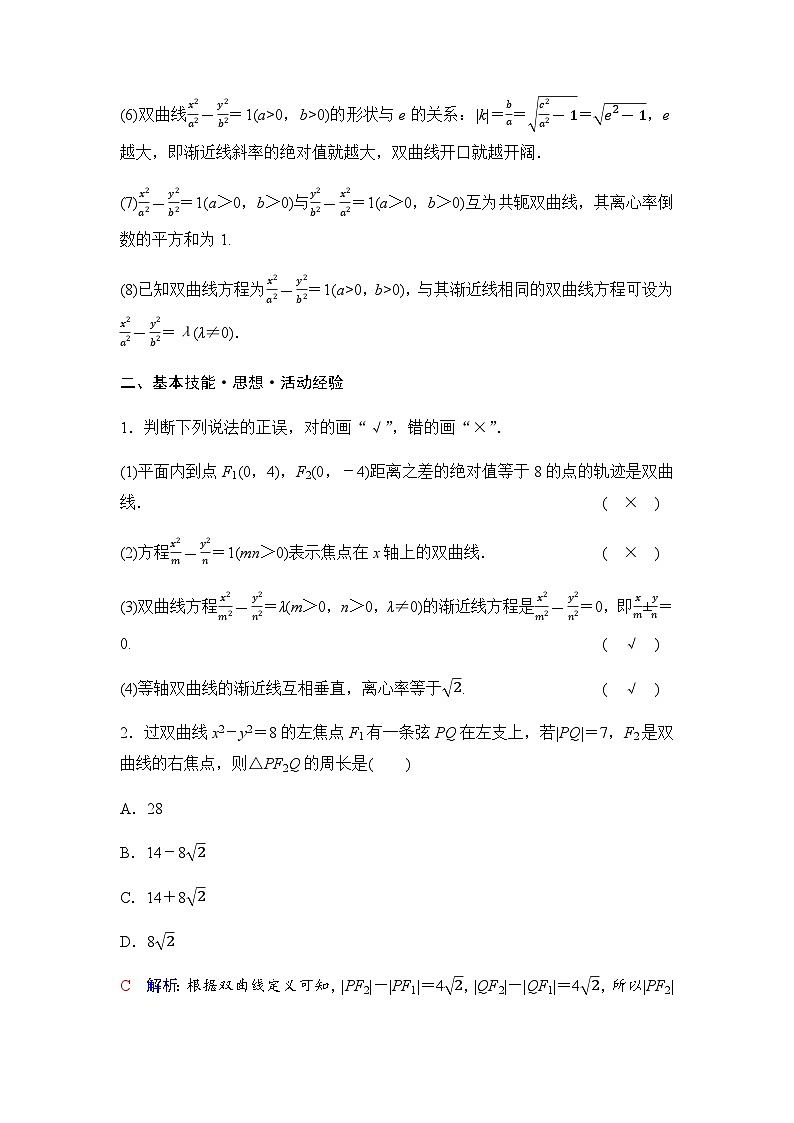 (6)双曲线x²/a²－y²/b²＝1(a>0，b>0)的形状与 e 的关系：|k|＝b/a＝√(c²/a²－1)＝√(e²－1)，e
越大，即渐近线斜率的绝对值就越大，双曲线开口就越开阔．
(7)x²/a²－y²/b²＝1(a＞0，b＞0)与y²/b²－x²/a²＝1(a＞0，b＞0)互为共轭双曲线，其离心率倒
数的平方和为 1.
(8)已知双曲线方程为x²/a²－y²/b²＝1(a>0，b>0)，与其渐近线相同的双曲线方程可设为
x²/a²－y²/b²＝λ(λ≠0)．
二、基本技能·思想·活动经验
1．判断下列说法的正误，对的画“√”，错的画“×”．
(1)平面内到点 F₁(0，4)，F₂(0，－4)距离之差的绝对值等于 8 的点的轨迹是双曲
线． ( × )
(2)方程x²/m－y²/n＝1(mn＞0)表示焦点在 x 轴上的双曲线． ( × )
(3)双曲线方程x²/m²－y²/n²＝λ(m＞0，n＞0，λ≠0)的渐近线方程是x²/m²－y²/n²＝0，即x/m±y/n＝
0. ( √ )
(4)等轴双曲线的渐近线互相垂直，离心率等于√2. ( √ )
2．过双曲线 x²－y²＝8 的左焦点 F₁ 有一条弦 PQ 在左支上，若|PQ|＝7，F₂ 是双
曲线的右焦点，则△PF₂Q 的周长是( )
A．28
B．14－8√2
C．14＋8√2
D．8√2
C 解析：根据双曲线定义可知，|PF₂|－|PF₁|＝4√2，|QF₂|－|QF₁|＝4√2，所以|PF₂|